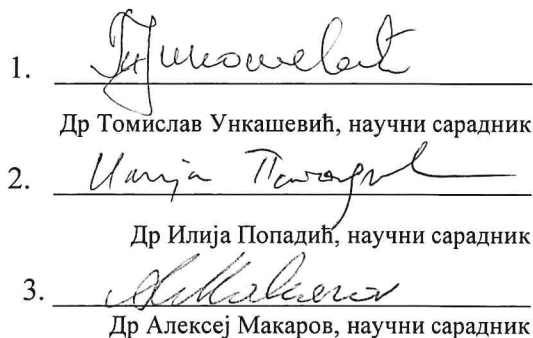 1.
Др Томислав Ункашевић, научни сарадник
2. Илија Попадић
Др Илија Попадић, научни сарадник
3.
Др Алексеј Макаров, научни сарадник